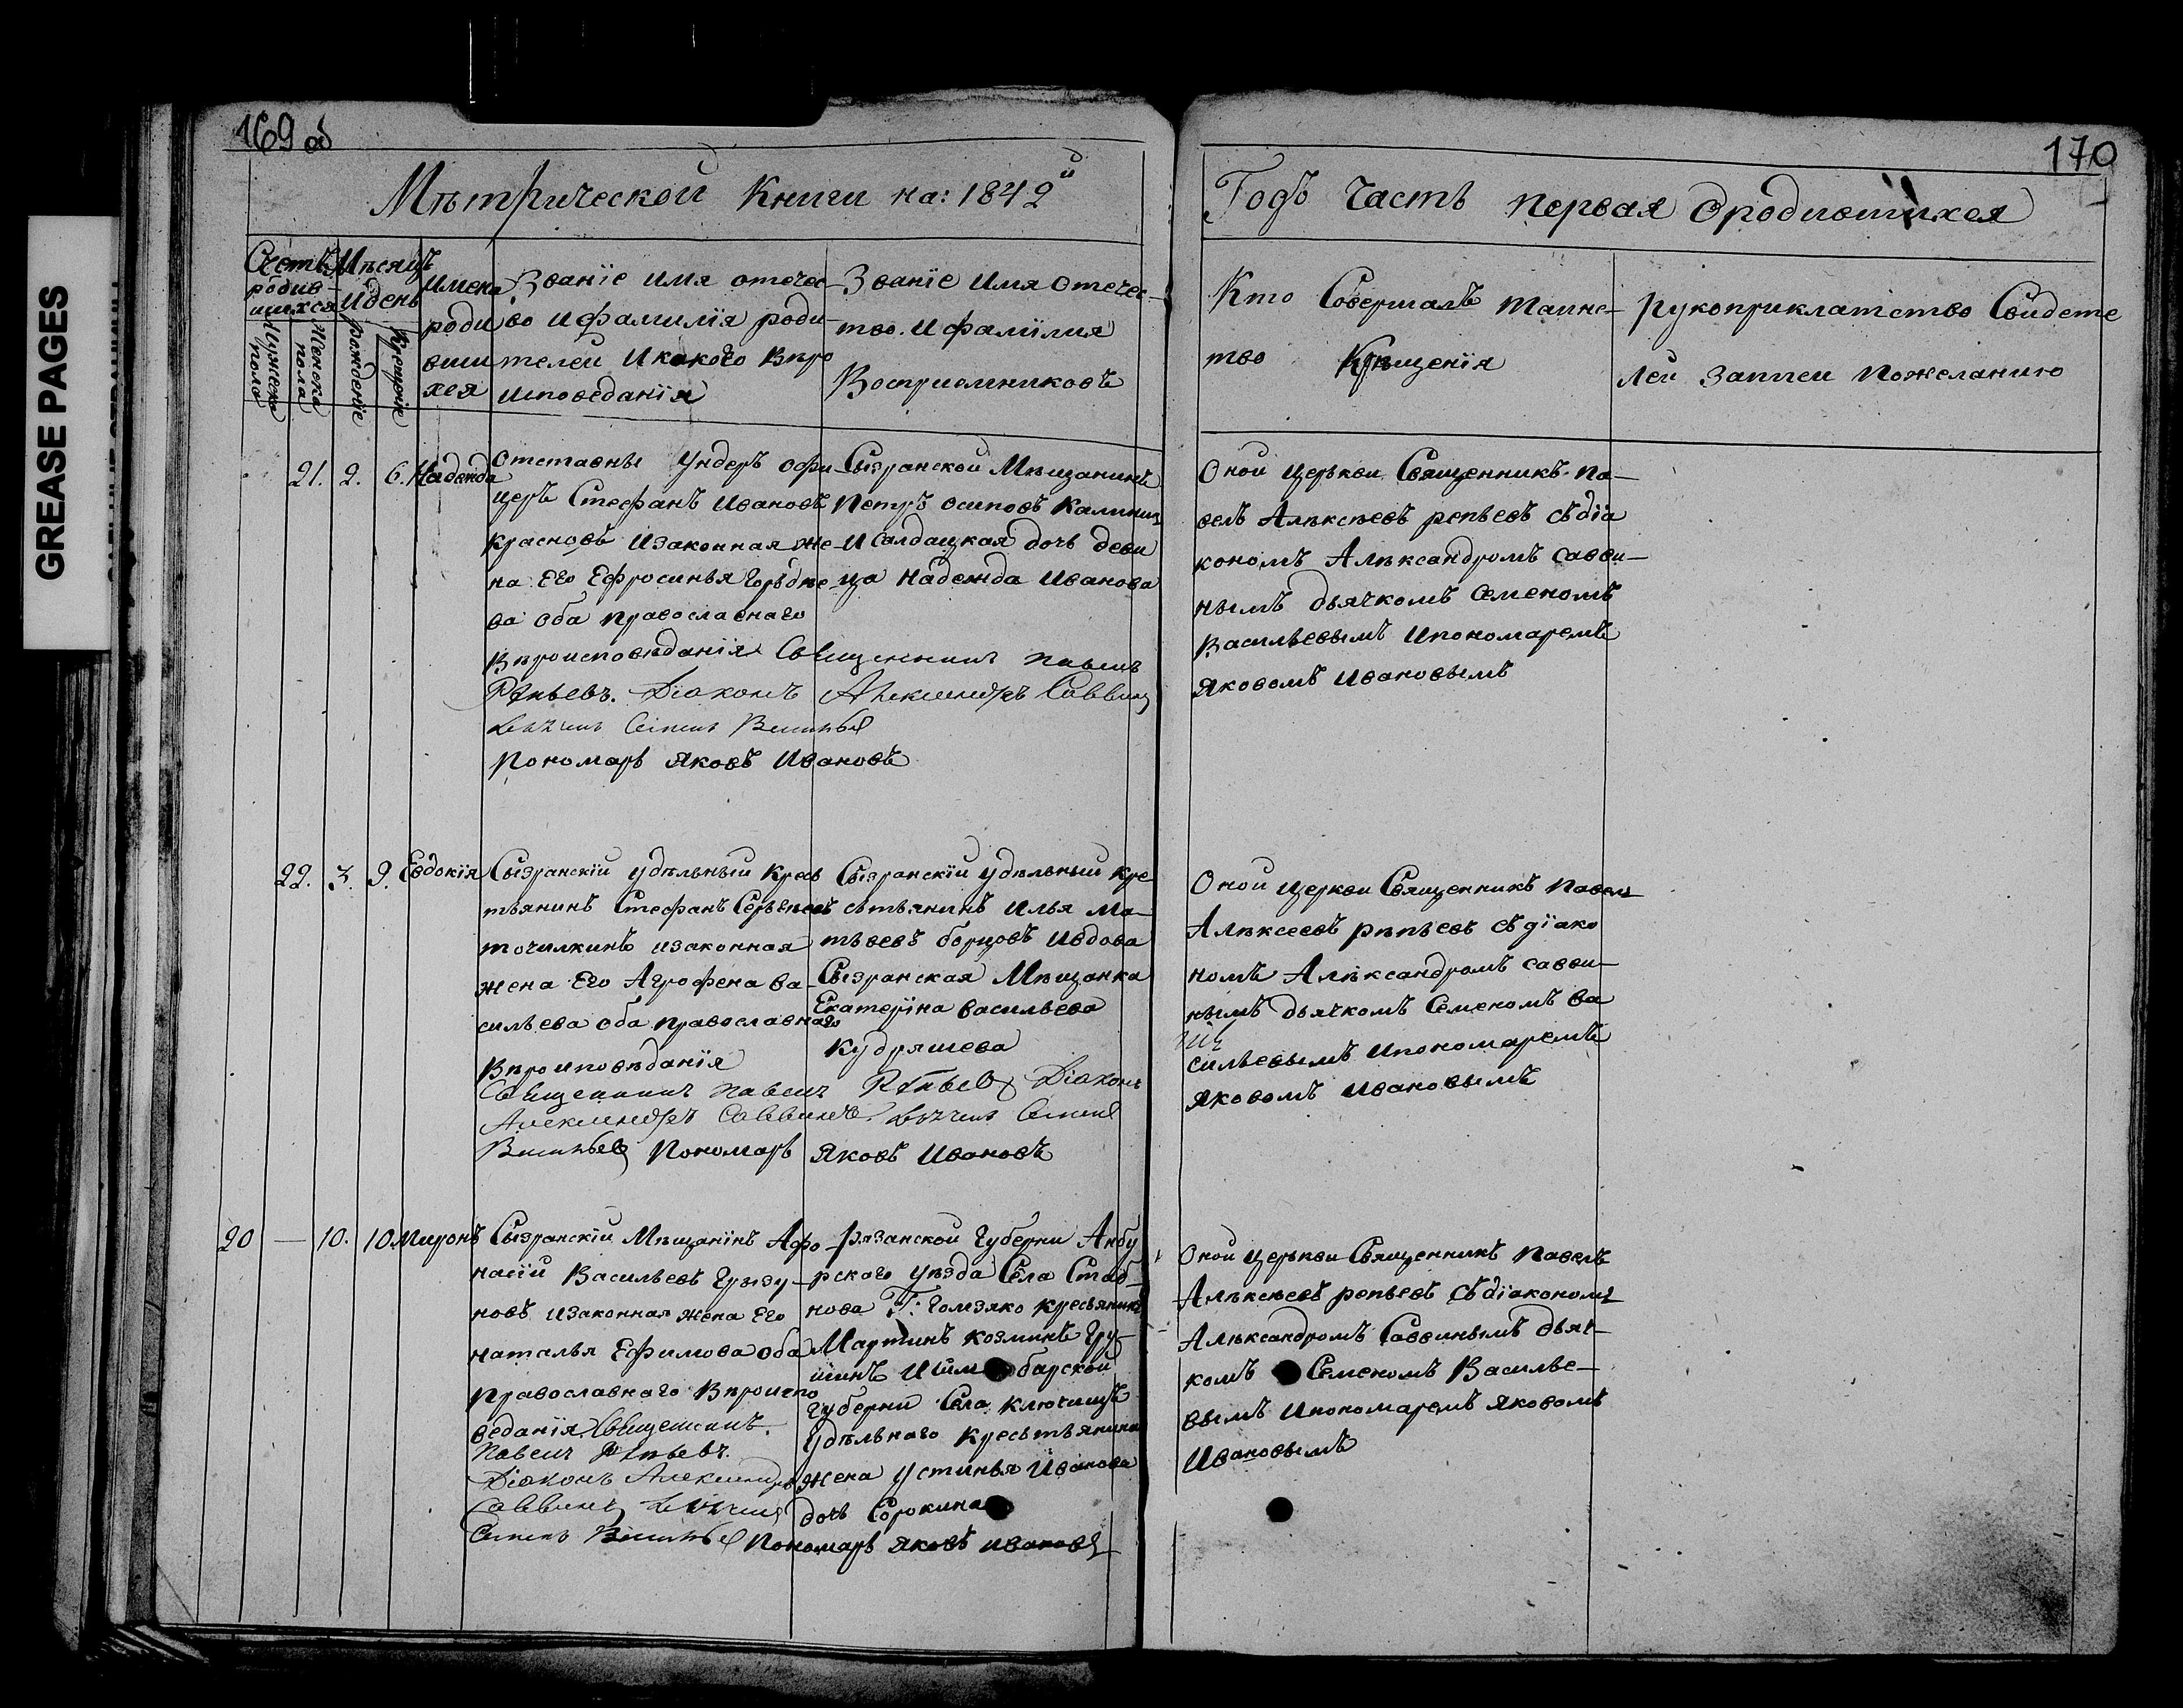 169 об
170
Мѣтрической Книги на: 1842й
Годъ Часть первая Ородившихся
Счетъ родив-
шихся
Мужеска пола
Женска пола
Мѣсяцъ
и день
Рождение
Крещение
Имена
роди
вши
хся
Званïе имя отечес-
во и фамилïя роди-
телей и какого впро
исповеданïя
Званïе Имя Отечес-
тво. и фамïлия
Восприемниковъ
Кто Совершалъ таинс-
тво Крѣщенïя
рукоприклатство Свидете
лей записи пожеланию
21. 2. 6. Надежда
отставные Ундеръ офи-
церъ Стефанъ Ивановъ
Красновъ изаконная же-
на Его Ефросинья
ва оба православнаго
Впроисповѣданïя Священникъ Павелъ
Рѣпьевъ. Дïаконъ Александръ Саввинъ
Дьячекъ Семенъ Васильев
Пономарь Яковъ Ивановъ
Сызранской Мѣщанинъ
Петръ осиповъ Калинин
и Салдацкая дочь деви
ца надежда Иванова
Оной церькви Священникъ па-
велъ Алѣксѣевъ репьевъ съдïа
кономъ Алѣксандромъ савви-
нымъ дьячкомъ Семеномъ
Васильевымъ ипономаремъ
Яковомъ Ивановымъ
22. 3. 9. Евдокïя
Сызранскïй удѣльный Крес
тьянинъ Стефанъ Сергѣевъ
точилкинъ изаконная
жена Его Агрофена ва-
сильева оба православнаго
Впроиповѣданïя
Священникъ Павелъ Рѣпьевъ Дïаконъ
Александръ Саввинъ. Дьячекъ Семен
Васильев Пономарь Яковъ Ивановъ
Сызранскïй удѣльный кре
сьтьянинъ Илья Ма-
тьвевъ борцовъ ивдова
Сызранская Мѣщанка
Екатерïна васильева
Кудряшева
Оной церкви Священникъ павелъ
Алѣксеевъ рѣпьевъ съдïако
номъ Алѣксандромъ савви-
нымъ дьячкомъ Семеномъ ва
сильевымъ ипономаремъ
Яковомъ Ивановымъ
20 — 10. 10. Миронъ
Сызранскïй Мѣщанïнъ Афо-
насïй Васильевъ Грызу-
новъ изаконная жена Его
наталья Ефимова оба
православнаго Впроиспо
веданïя Священникъ.
Павелъ Рѣпьевъ.
Дïаконъ Александръ
Саввинъ Дьячекъ
Семенъ Васильев Пономарь Яковъ Ивановъ
Рязанской Губерни Анбу
рского уѣзда Села Стаб-
нова Г: Гомзяко кресьянинъ
Мартинъ козминъ Гру-
шинъ Исим барской
Губерни Села ключищъ
Удѣльнаго Кресьтьянина
жена устинья Иванова
дочь Сорокина
Оной церькви Священникъ павелъ
Алѣксѣевъ репьевъ съдïакономъ
Алѣксандромъ Саввинымъ дьяч-
комъ Семеномъ Василье-
вымъ ипономаремъ Яковомъ
Ивановымъ
GREASE PAGES